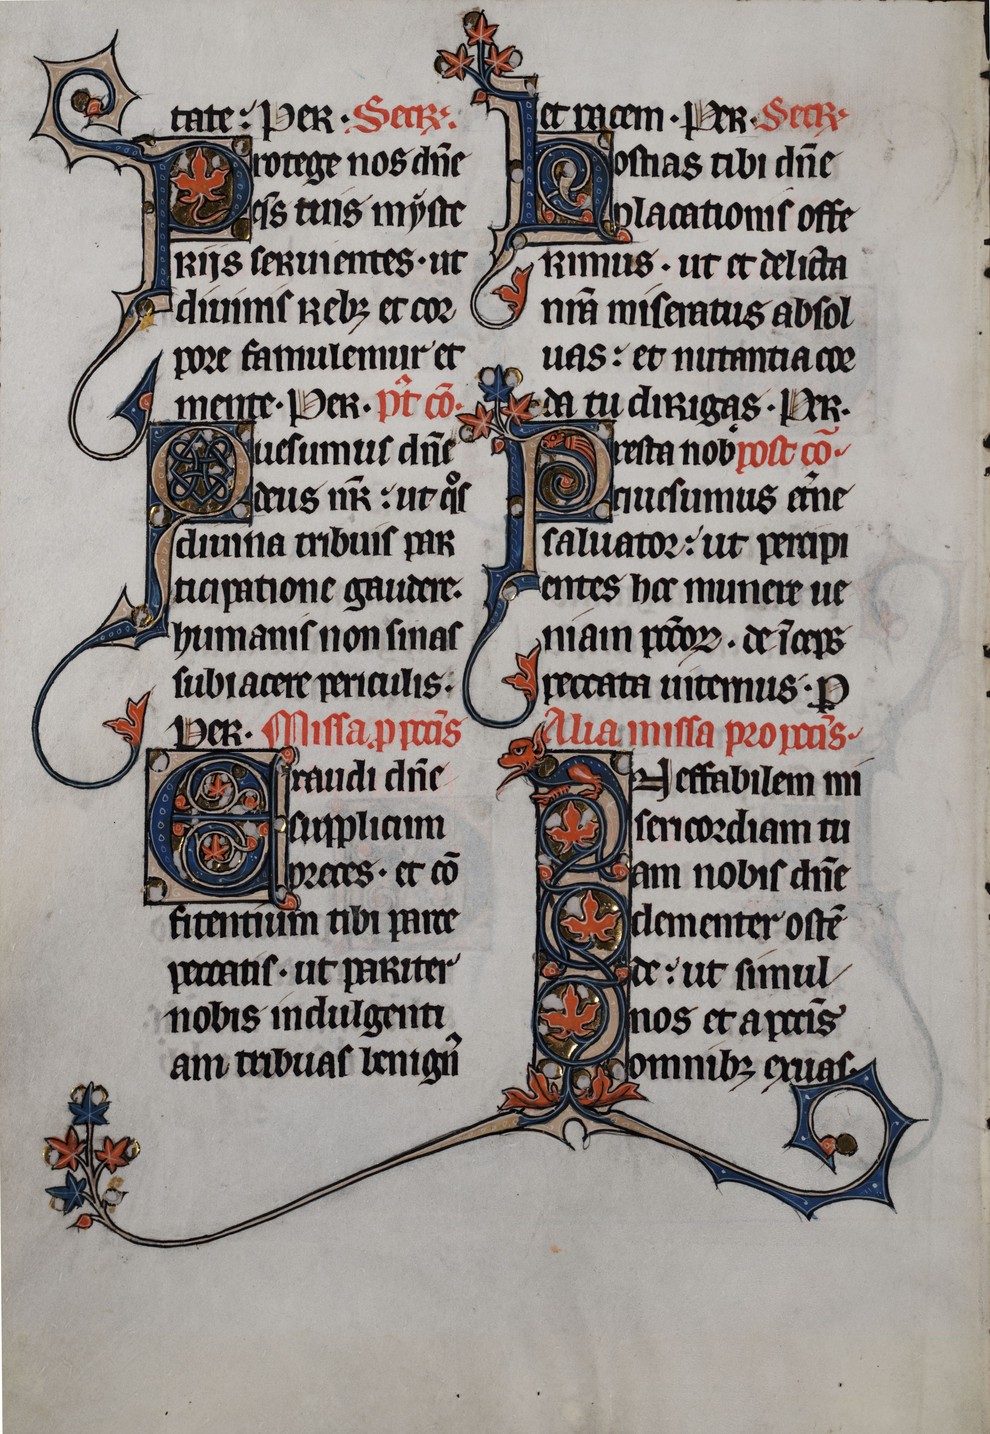 tate: Per. Secr.
Protege nos dn̄e
qs̄s tuis myste
riis seruientes. ut
diuinis rebꝫ et cor
pore famulemur et
mente. Per. p̄t cō.
Quesumus dn̄e
deus nr̄: ut qͦs
diuina tribuis par
ticipatione gaudere.
humanis non sinas
subiacere periculis.
Per. Missa. p pcc̄is
Exaudi dn̄e
supplicum
preces. et cō
fitentium tibi parce
peccatis. ut pariter
nobis indulgenti
am tribuas benign̄
et pacem. Per. Secr
Hostias tibi dn̄e
placationis offe
rimus. ut et delicta
nr̄a miseratus absol
uas: et nutantia cor
da tu dirigas. Per.
Presta nob̾ post cō.
quesumus et̄ne
saluator: ut percipi
entes hoc munere ue
niam pcc̄oꝝ. de īceps
peccata uitemus. P
Alia missa pro pcc̄is.
Ineffabilem mi
sericordiam tu
am nobis dn̄e
clementer ostē
de: ut simul
nos et a pcc̄is
omnibꝫ exuas.